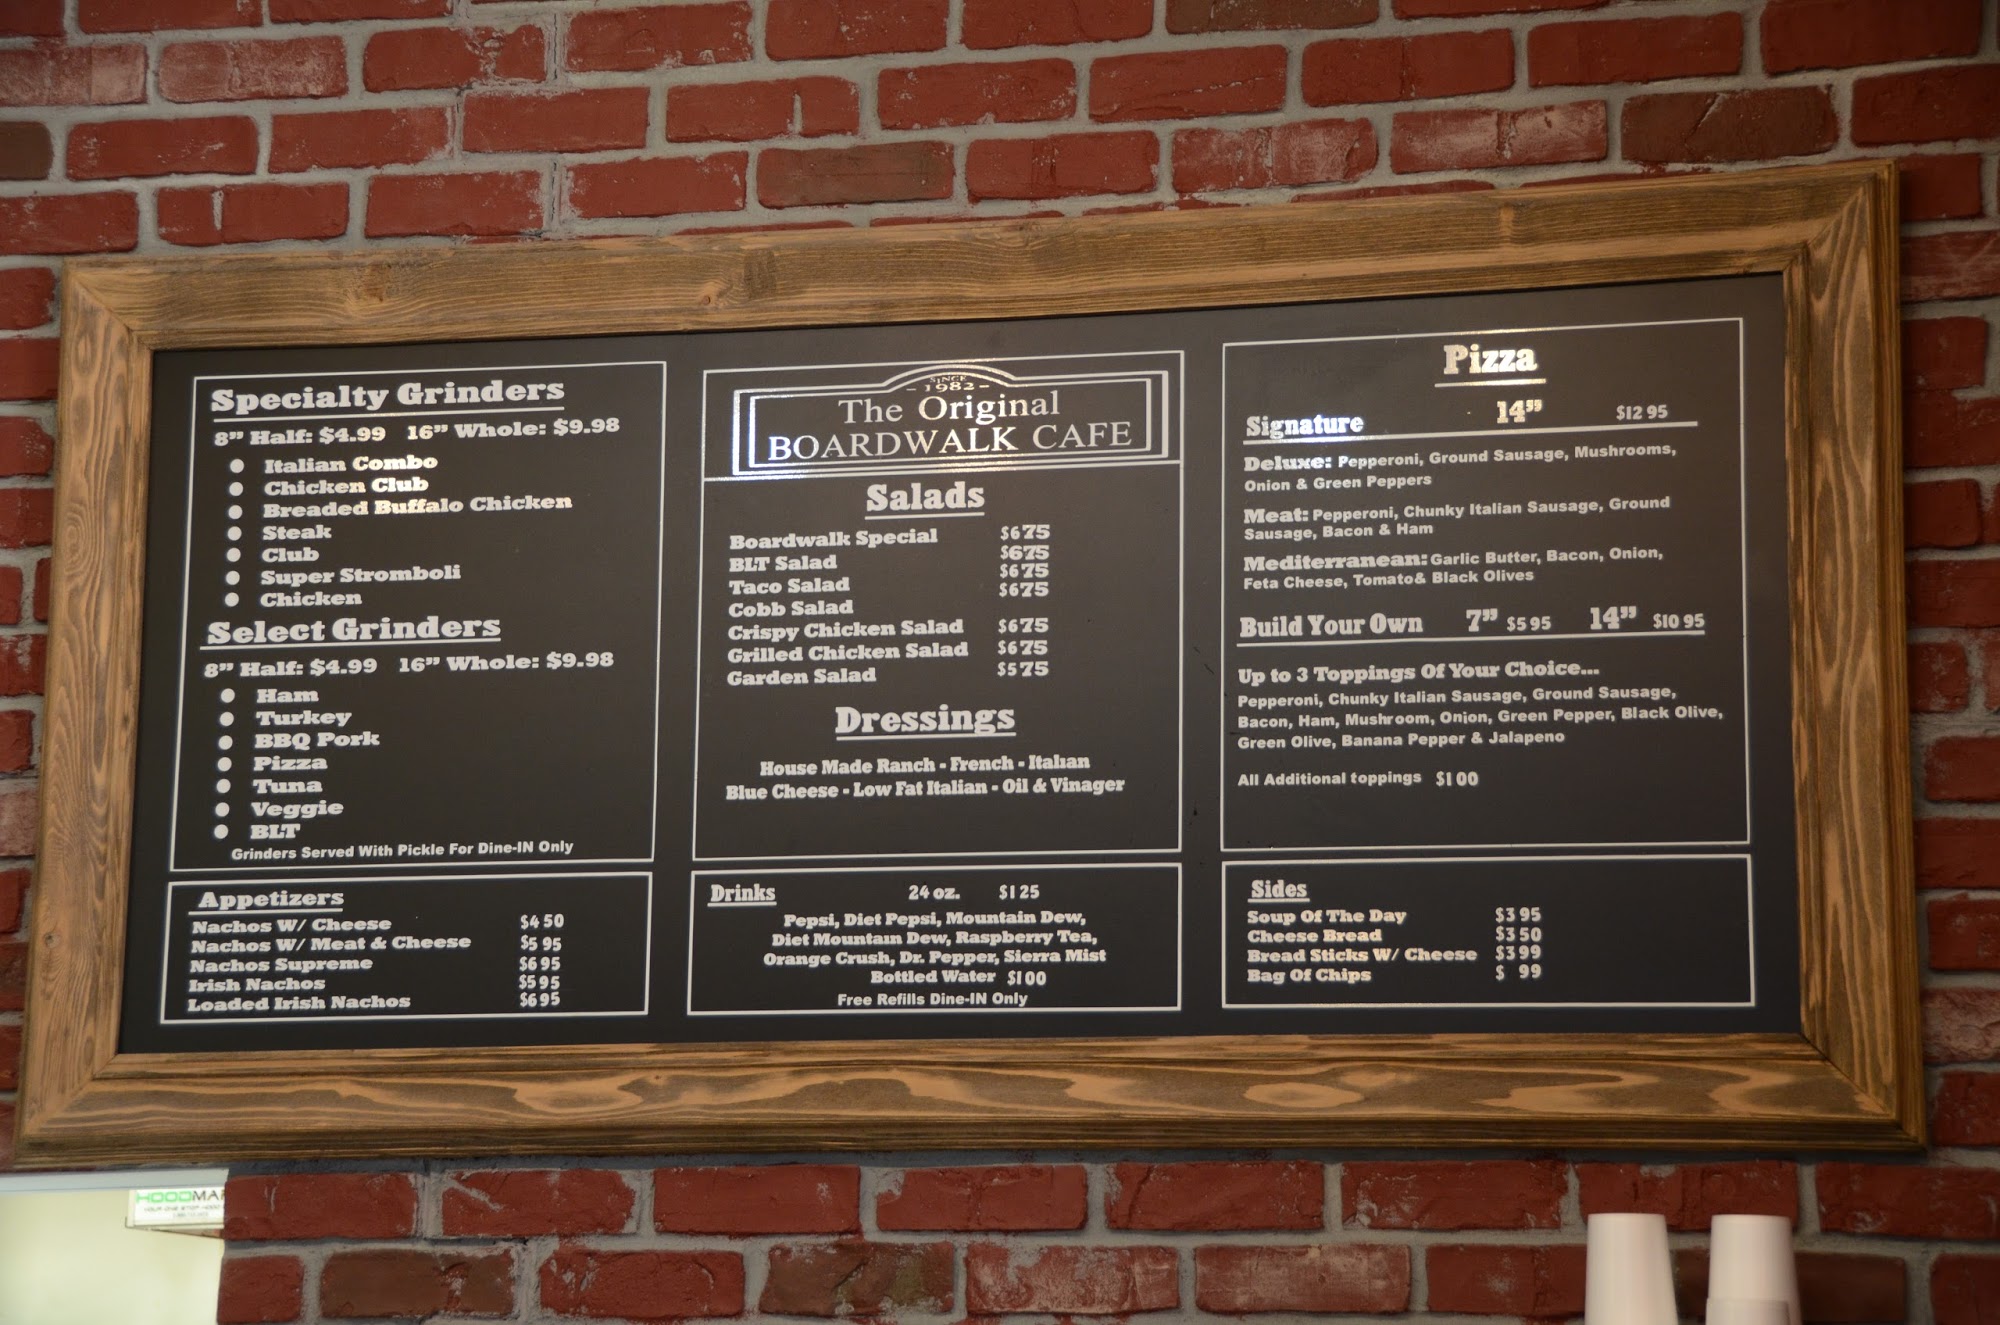 Specialty Grinders
8" Half: $4.99 16" Whole: $9.98
Italian Combo
Chicken Club
Breaded Buffalo Chicken
Steak
Club
Super Stromboli
Chicken
Select Grinders
8" Half: $4.99 16" Whole: $9.98
Ham
Turkey
BBQ Pork
Pizza
Tuna
Veggie
BLT
Grinders Served With Pickle For Dine-IN Only
Appetizers
Nachos W/ Cheese $4 50
Nachos W/ Meat & Cheese $5 95
Nachos Supreme $6 95
Irish Nachos $5 95
Loaded Irish Nachos $6 95
SINCE
- 1982 -
The Original
BOARDWALK CAFE
Salads
Boardwalk Special $6 75
BLT Salad $6 75
Taco Salad $6 75
Cobb Salad $6 75
Crispy Chicken Salad $6 75
Grilled Chicken Salad $6 75
Garden Salad $5 75
Dressings
House Made Ranch - French - Italian
Blue Cheese - Low Fat Italian - Oil & Vinager
Drinks 24 oz. $1 25
Pepsi, Diet Pepsi, Mountain Dew,
Diet Mountain Dew, Raspberry Tea,
Orange Crush, Dr. Pepper, Sierra Mist
Bottled Water $1 00
Free Refills Dine-IN Only
Pizza
Signature 14" $12 95
Deluxe: Pepperoni, Ground Sausage, Mushrooms,
Onion & Green Peppers
Meat: Pepperoni, Chunky Italian Sausage, Ground
Sausage, Bacon & Ham
Mediterranean: Garlic Butter, Bacon, Onion,
Feta Cheese, Tomato& Black Olives
Build Your Own 7" $5 95 14" $10 95
Up to 3 Toppings Of Your Choice...
Pepperoni, Chunky Italian Sausage, Ground Sausage,
Bacon, Ham, Mushroom, Onion, Green Pepper, Black Olive,
Green Olive, Banana Pepper & Jalapeno
All Additional toppings $1 00
Sides
Soup Of The Day $3 95
Cheese Bread $3 50
Bread Sticks W/ Cheese $3 99
Bag Of Chips $ 99
HOODMAR